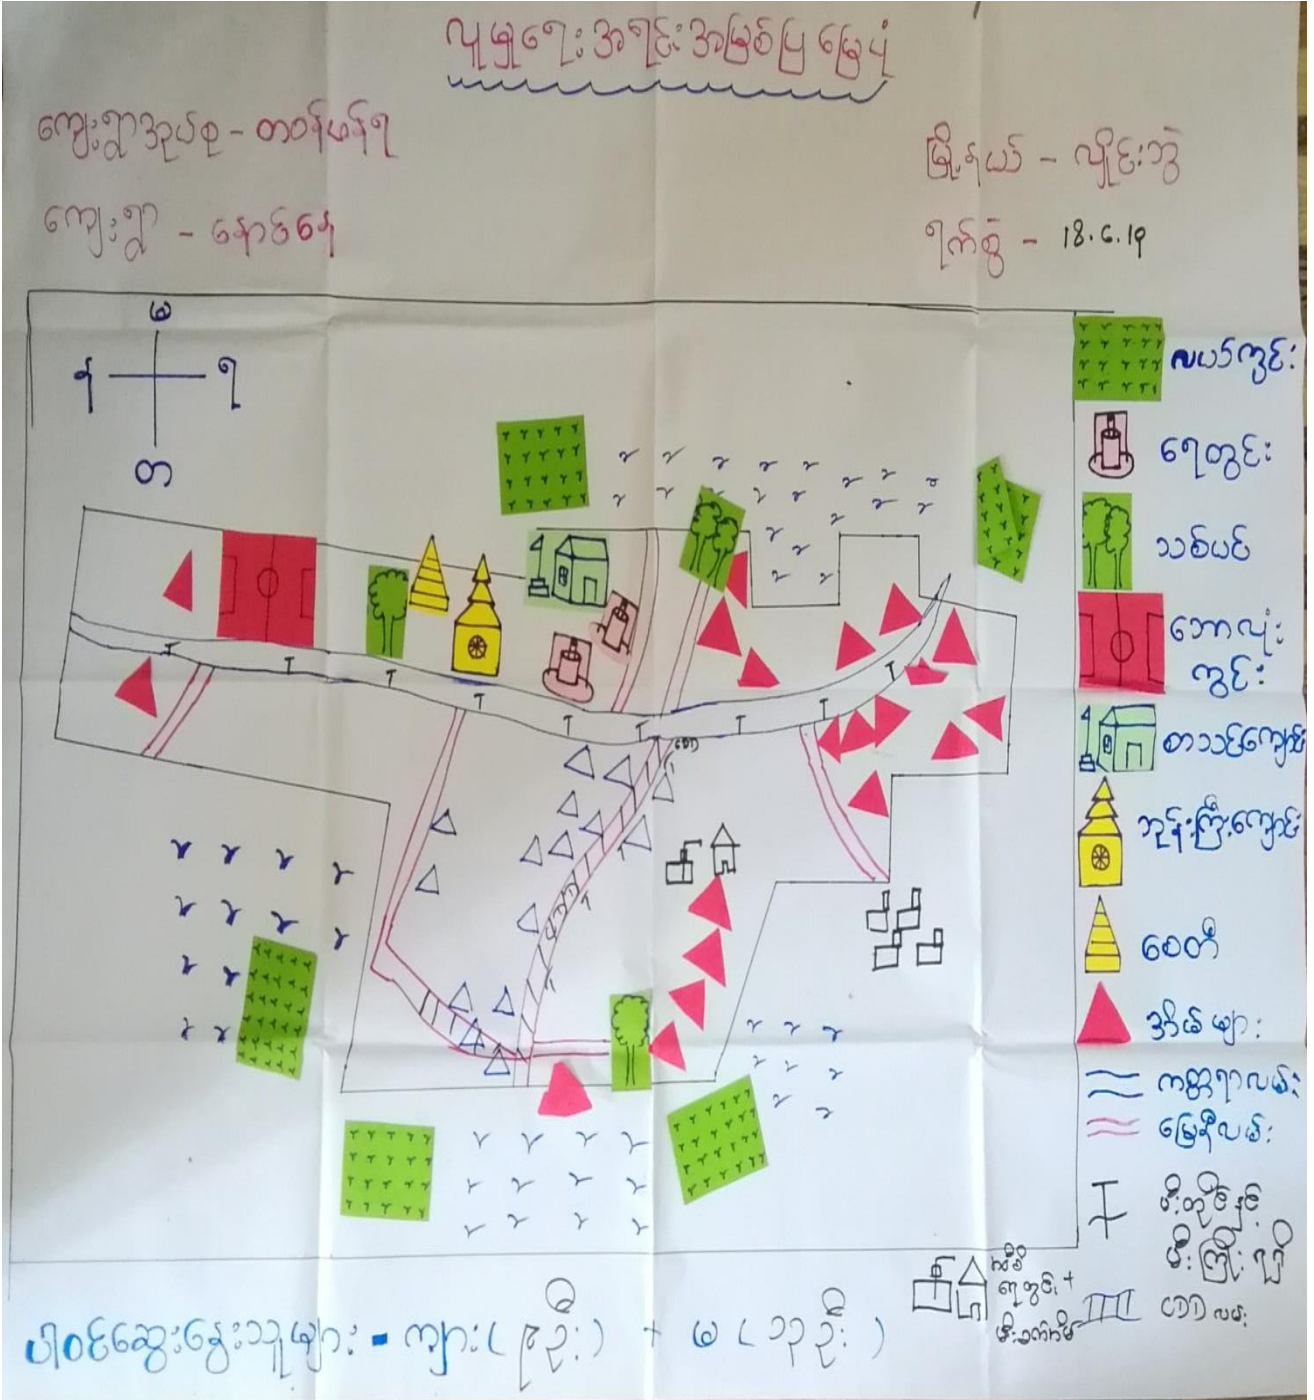 လူမှုရေးအရင်းအမြစ်ပြ မြေပုံ
ကျေးရွာအုပ်စု - တဝန်ဖန်ရ
မြို့နယ် - လှိုင်းဘွဲ
ကျေးရွာ - နောင်နေ
ရက်စွဲ - 18.6.19
မ
န ရ
တ
လယ်ကွင်း
ရေတွင်း
သစ်ပင်
ဘောလုံး
ကွင်း
စာသင်ကျောင်း
ဘုန်းကြီးကျောင်း
စေတီ
အိမ်များ
ကတ္တရာလမ်း
မြေနီလမ်း
မီးတိုင်နှင့်
မီးကြိုး
CDD
CDD
ရေတွင်း +
မီးစက်အိမ်
CDD လမ်း
ပါဝင်ဆွေးနွေးသူများ - ကျား ( ၉ဦး ) + မ ( ၁၃ဦး )